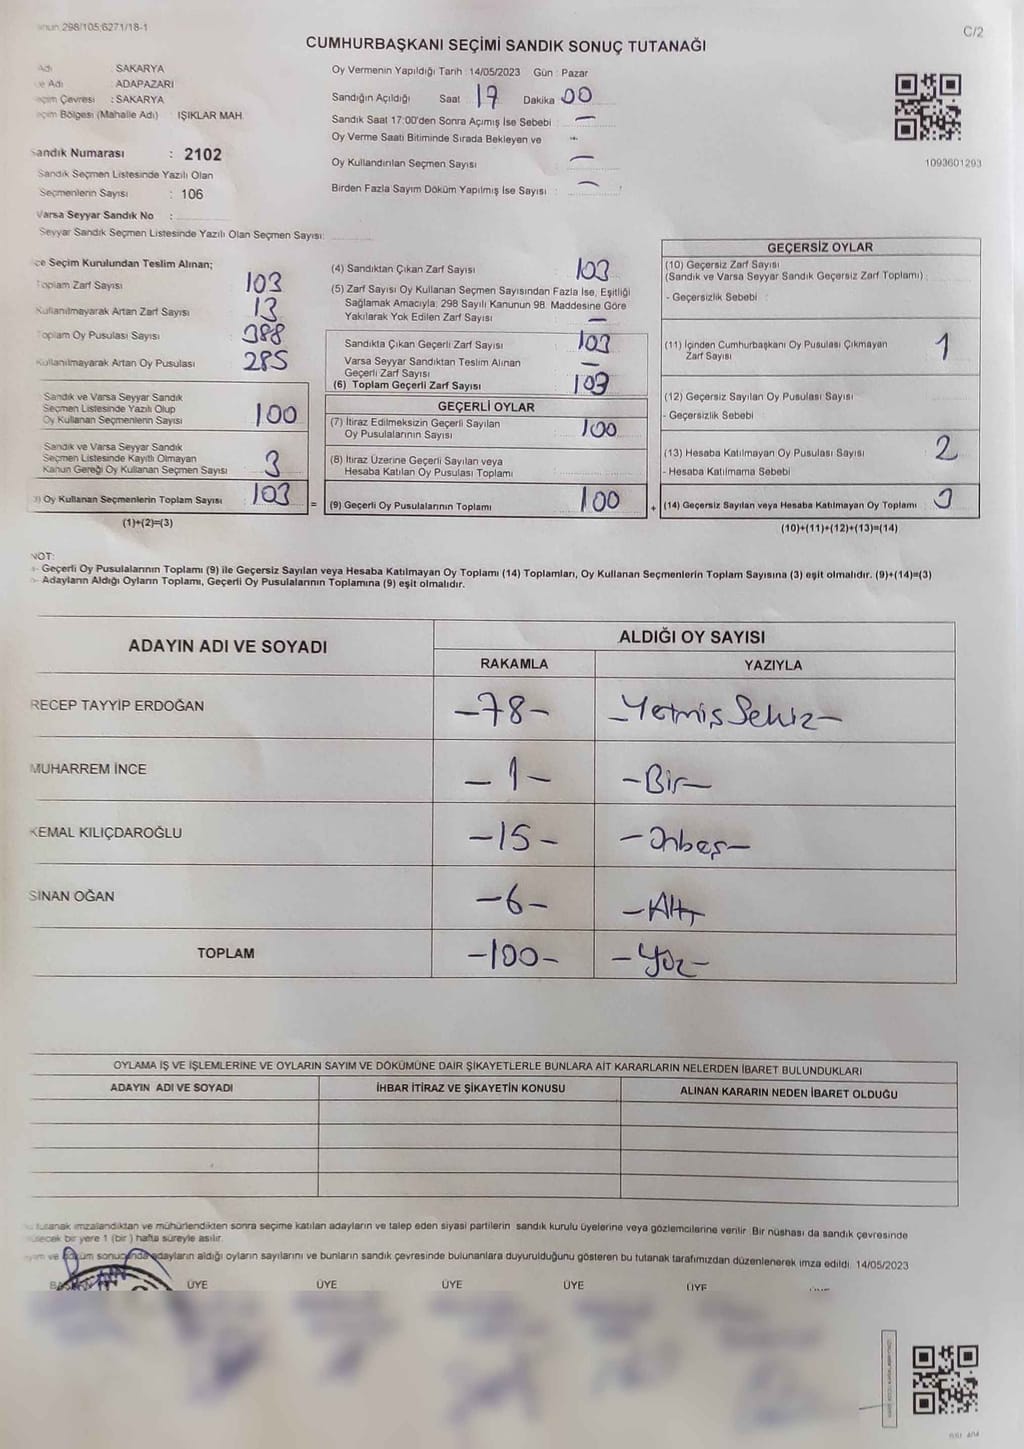 298/105;6271/18-1
C/2
CUMHURBAŞKANI SEÇİMİ SANDIK SONUÇ TUTANAĞI
Adı : SAKARYA
Adı : ADAPAZARI
Çevresi : SAKARYA
Bölgesi (Mahalle Adı) : IŞIKLAR MAH.
Sandık Numarası : 2102
Sandık Seçmen Listesinde Yazılı Olan
Seçmenlerin Sayısı : 106
Varsa Seyyar Sandık No :
Seyyar Sandık Seçmen Listesinde Yazılı Olan Seçmen Sayısı:
Oy Vermenin Yapıldığı Tarih : 14/05/2023 Gün : Pazar
Sandığın Açıldığı Saat 17 Dakika 00
Sandık Saat 17:00'den Sonra Açımış İse Sebebi : —
Oy Verme Saati Bitiminde Sırada Bekleyen ve
Oy Kullandırılan Seçmen Sayısı —
Birden Fazla Sayım Döküm Yapılmış İse Sayısı : —
1093601293
Seçim Kurulundan Teslim Alınan;
Toplam Zarf Sayısı 103
Kullanılmayarak Artan Zarf Sayısı 13
Toplam Oy Pusulası Sayısı 388
Kullanılmayarak Artan Oy Pusulası 285
Sandık ve Varsa Seyyar Sandık
Seçmen Listesinde Yazılı Olup
Oy Kullanan Seçmenlerin Sayısı 100
Sandık ve Varsa Seyyar Sandık
Seçmen Listesinde Kayıtlı Olmayan
Kanun Gereği Oy Kullanan Seçmen Sayısı 3
3) Oy Kullanan Seçmenlerin Toplam Sayısı 103 =
(1)+(2)=(3)
(4) Sandıktan Çıkan Zarf Sayısı 103
(5) Zarf Sayısı Oy Kullanan Seçmen Sayısından Fazla İse, Eşitliği
Sağlamak Amacıyla; 298 Sayılı Kanunun 98. Maddesine Göre
Yakılarak Yok Edilen Zarf Sayısı —
Sandıkta Çıkan Geçerli Zarf Sayısı 103
Varsa Seyyar Sandıktan Teslim Alınan —
Geçerli Zarf Sayısı
(6) Toplam Geçerli Zarf Sayısı 103
GEÇERLİ OYLAR
(7) İtiraz Edilmeksizin Geçerli Sayılan
Oy Pusulalarının Sayısı 100
(8) İtiraz Üzerine Geçerli Sayılan veya
Hesaba Katılan Oy Pusulası Toplamı
(9) Geçerli Oy Pusulalarının Toplamı 100 +
GEÇERSİZ OYLAR
(10) Geçersiz Zarf Sayısı
(Sandık ve Varsa Seyyar Sandık Geçersiz Zarf Toplamı) :
- Geçersizlik Sebebi :
(11) İçinden Cumhurbaşkanı Oy Pusulası Çıkmayan
Zarf Sayısı 1
(12) Geçersiz Sayılan Oy Pusulası Sayısı
- Geçersizlik Sebebi :
(13) Hesaba Katılmayan Oy Pusulası Sayısı 2
- Hesaba Katılmama Sebebi
(14) Geçersiz Sayılan veya Hesaba Katılmayan Oy Toplamı : 3
(10)+(11)+(12)+(13)=(14)
NOT:
- Geçerli Oy Pusulalarının Toplamı (9) ile Geçersiz Sayılan veya Hesaba Katılmayan Oy Toplamı (14) Toplamları, Oy Kullanan Seçmenlerin Toplam Sayısına (3) eşit olmalıdır. (9)+(14)=(3)
- Adayların Aldığı Oyların Toplamı, Geçerli Oy Pusulalarının Toplamına (9) eşit olmalıdır.
ADAYIN ADI VE SOYADI
ALDIĞI OY SAYISI
RAKAMLA YAZIYLA
RECEP TAYYİP ERDOĞAN -78- -Yetmiş Sekiz-
MUHARREM İNCE -1- -Bir-
KEMAL KILIÇDAROĞLU -15- -Onbeş-
SİNAN OĞAN -6- -Altı-
TOPLAM -100- -Yüz-
OYLAMA İŞ VE İŞLEMLERİNE VE OYLARIN SAYIM VE DÖKÜMÜNE DAİR ŞİKAYETLERLE BUNLARA AİT KARARLARIN NELERDEN İBARET BULUNDUKLARI
ADAYIN ADI VE SOYADI İHBAR İTİRAZ VE ŞİKAYETİN KONUSU ALINAN KARARIN NEDEN İBARET OLDUĞU
tutanak imzalandıktan ve mühürlendikten sonra seçime katılan adayların ve talep eden siyasi partilerin sandık kurulu üyelerine veya gözlemcilerine verilir. Bir nüshası da sandık çevresinde
bir yere 1 (bir) hafta süreyle asılır.
ve döküm sonucunda adayların aldığı oyların sayılarını ve bunların sandık çevresinde bulunanlara duyurulduğunu gösteren bu tutanak tarafımızdan düzenlenerek imza edildi. 14/05/2023
BAŞKAN ÜYE ÜYE ÜYE ÜYE ÜYE